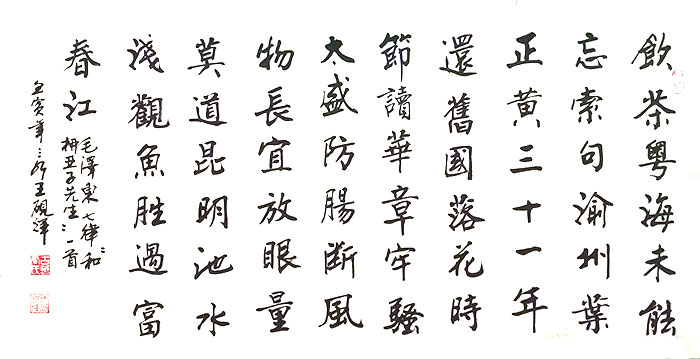 飲茶粵海未能
忘索句渝州葉
正黃三十一年
還舊國落花時
節讀華章牢騷
太盛防腸斷風
物長宜放眼量
莫道昆明池水
淺觀魚胜過富
春江
毛澤東七律:和
柳亞子先生:一首
壬寅年王硯洋